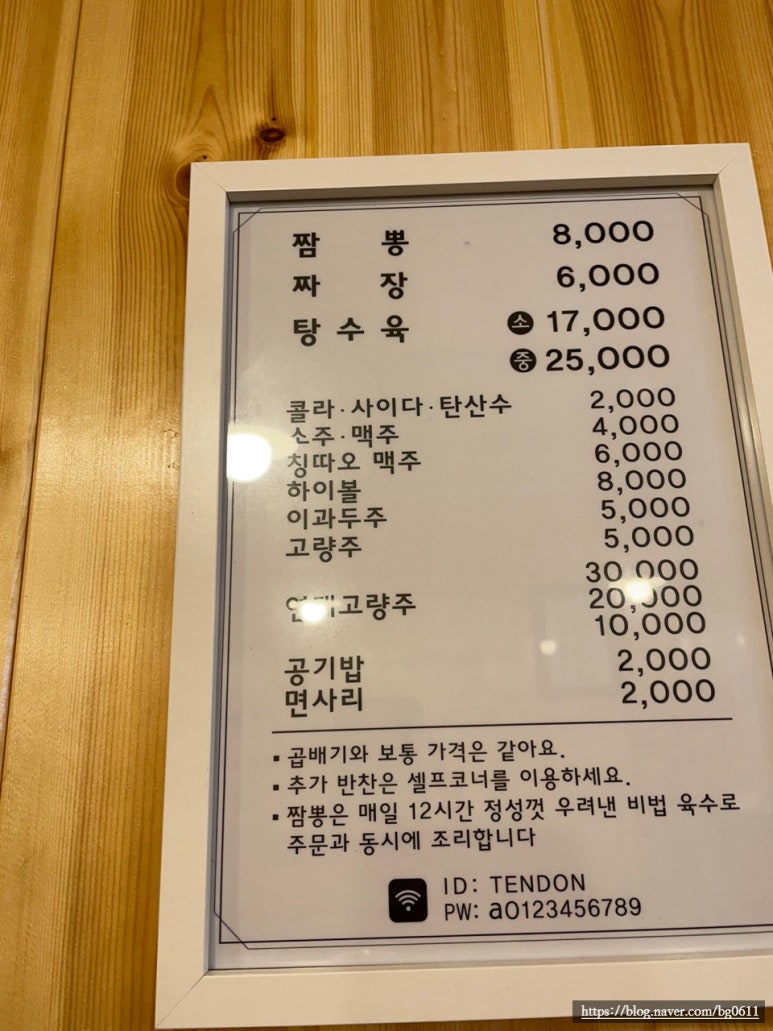 짬 뽕 8,000
짜 장 6,000
탕 수 육 소 17,000
중 25,000
콜라·사이다·탄산수 2,000
소주·맥주 4,000
칭따오 맥주 6,000
하이볼 8,000
이과두주 5,000
고량주 5,000
30,000
연태고량주 20,000
10,000
공기밥 2,000
면사리 2,000
▪ 곱배기와 보통 가격은 같아요.
▪ 추가 반찬은 셀프코너를 이용하세요.
▪ 짬뽕은 매일 12시간 정성껏 우려낸 비법 육수로
주문과 동시에 조리합니다
ID: TENDON
PW: a0123456789
https://blog.naver.com/bg0611